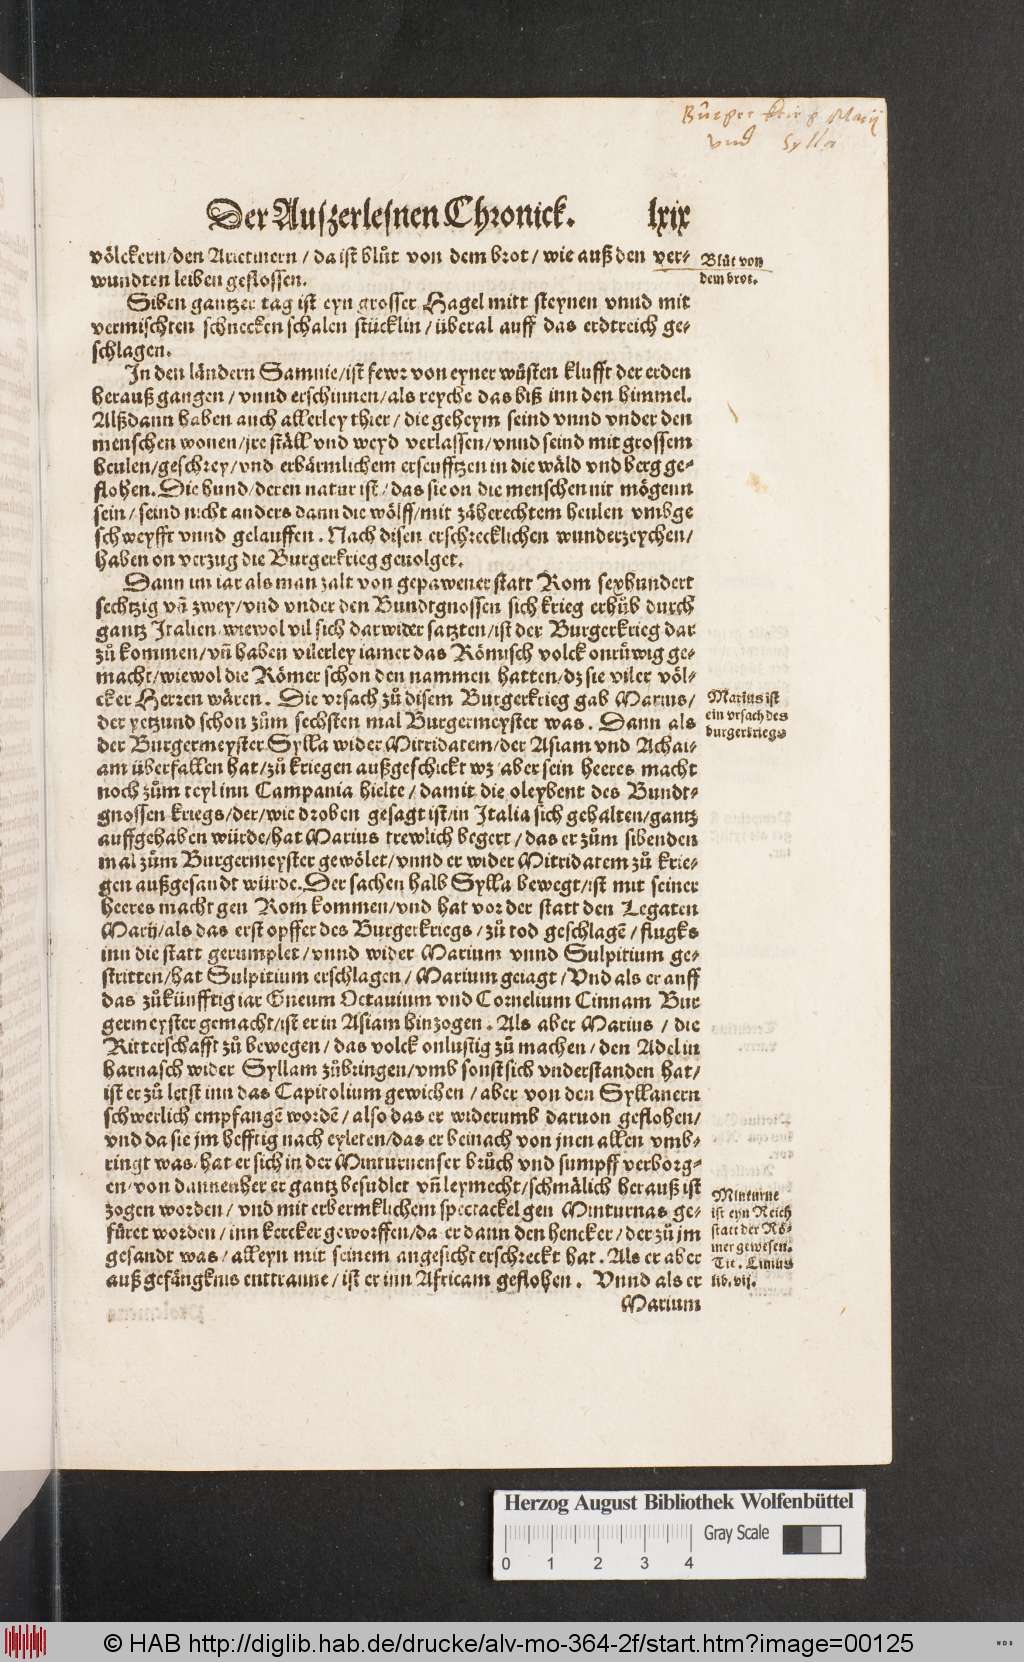 Bürger krieg Marij
vnd Sylla
Der Auszerlesnen Chronick. lxix
völckern/den Aretinern/da ist blůt von dem brot/wie auß den ver-
wundten leiben geflossen.
Blůt von
dem brot.
Siben gantzer tag ist eyn grosser Hagel mitt steynen vnnd mit
vermischten schnecken schalen stücklin/überal auff das erdtreich ge-
schlagen.
In den ländern Samnie/ist fewr von eyner wůsten klufft der erden
herauß gangen/vnnd erschinnen/als reyche das biß inn den himmel.
Alßdann haben auch allerley thier/die geheym seind vnnd vnder den
menschen wonen/jre ställ vnd weyd verlassen/vnnd seind mit grossem
heulen/geschrey/vnd erbärmlichem erseufftzen in die wäld vnd berg ge-
flohen. Die hund/deren natur ist/das sie on die menschen nit mögenn
sein/seind nicht anders dann die wölff/mit zäherechtem heulen vmbge
schweyfft vnnd gelauffen. Nach disen erschrecklichen wunderzeychen/
haben on verzug die Burgerkrieg geuolget.
Dann im iar als man zalt von gepawener statt Rom sexhundert
sechtzig vñ zwey/vnd vnder den Bundtgnossen sich krieg erhůb durch
gantz Italien/wiewol vil sich darwider satzten/ist der Burgerkrieg dar
zů kommen/vñ haben vilerley iamer das Römisch volck onrůwig ge-
macht/wiewol die Römer schon den nammen hatten/dz sie viler völ-
cker Herren wären. Die vrsach zů disem Burgerkrieg gab Marius/
der yetzund schon zům sechsten mal Burgermeyster was. Dann als
der Burgermeyster Sylla wider Mitridatem/der Asiam vnd Achai-
am überfallen hat/zů kriegen außgeschickt wz/aber sein heeres macht
noch zům teyl inn Campania hielte/damit die oleybent des Bundt-
gnossen kriegs/der/wie droben gesagt ist/in Italia sich gehalten/gantz
auffgehaben würde/hat Marius trewlich begert/das er zům sibenden
mal zům Burgermeyster gewölet/vnnd er wider Mitridatem zů krie-
gen außgesandt würde. Der sachen halb Sylla bewegt/ist mit seiner
heeres macht gen Rom kommen/vnd hat vor der statt den Legaten
Marij/als das erst opffer des Burgerkriegs/zů tod geschlagē/flugks
inn die statt gerumplet/vnnd wider Marium vnnd Sulpitium ge-
stritten/hat Sulpitium erschlagen/Marium geiagt/Vnd als er auff
das zůkünfftig iar Gneum Octauium vnd Cornelium Cinnam Bur
germeyster gemacht/ist er in Asiam hinzogen. Als aber Marius/die
Ritterschafft zů bewegen/das volck onlustig zů machen/den Adel in
harnasch wider Syllam zůbringen/vmb sonst sich vnderstanden hat/
ist er zů letst inn das Capitolium gewichen/aber von den Syllanern
schwerlich empfangē wordē/also das er widerumb daruon geflohen/
vnd da sie jm hefftig nach eyleten/das er beinach von jnen allen vmb-
ringt was/hat er sich in der Minturnenser brůch vnd sumpff verborg-
en/von dannenher er gantz besudlet vñ leymecht/schmälich herauß ist
zogen worden/vnd mit erbermklichem spectackel gen Minturnas ge-
füret worden/inn kercker geworffen/da er dann den hencker/der zů jm
gesandt was/alleyn mit seinem angesicht erschreckt hat. Als er aber
auß gefängknis enttranne/ist er inn Africam geflohen. Vnnd als er
Marium
Marius ist
ein vrsach des
burgerkriegs
Minturne
ist eyn Reich
statt der Rö-
mer gewesen.
Tit. Liuius
lib. vij.
Herzog August Bibliothek Wolfenbüttel
Gray Scale
0 1 2 3 4
© HAB http://diglib.hab.de/drucke/alv-mo-364-2f/start.htm?image=00125